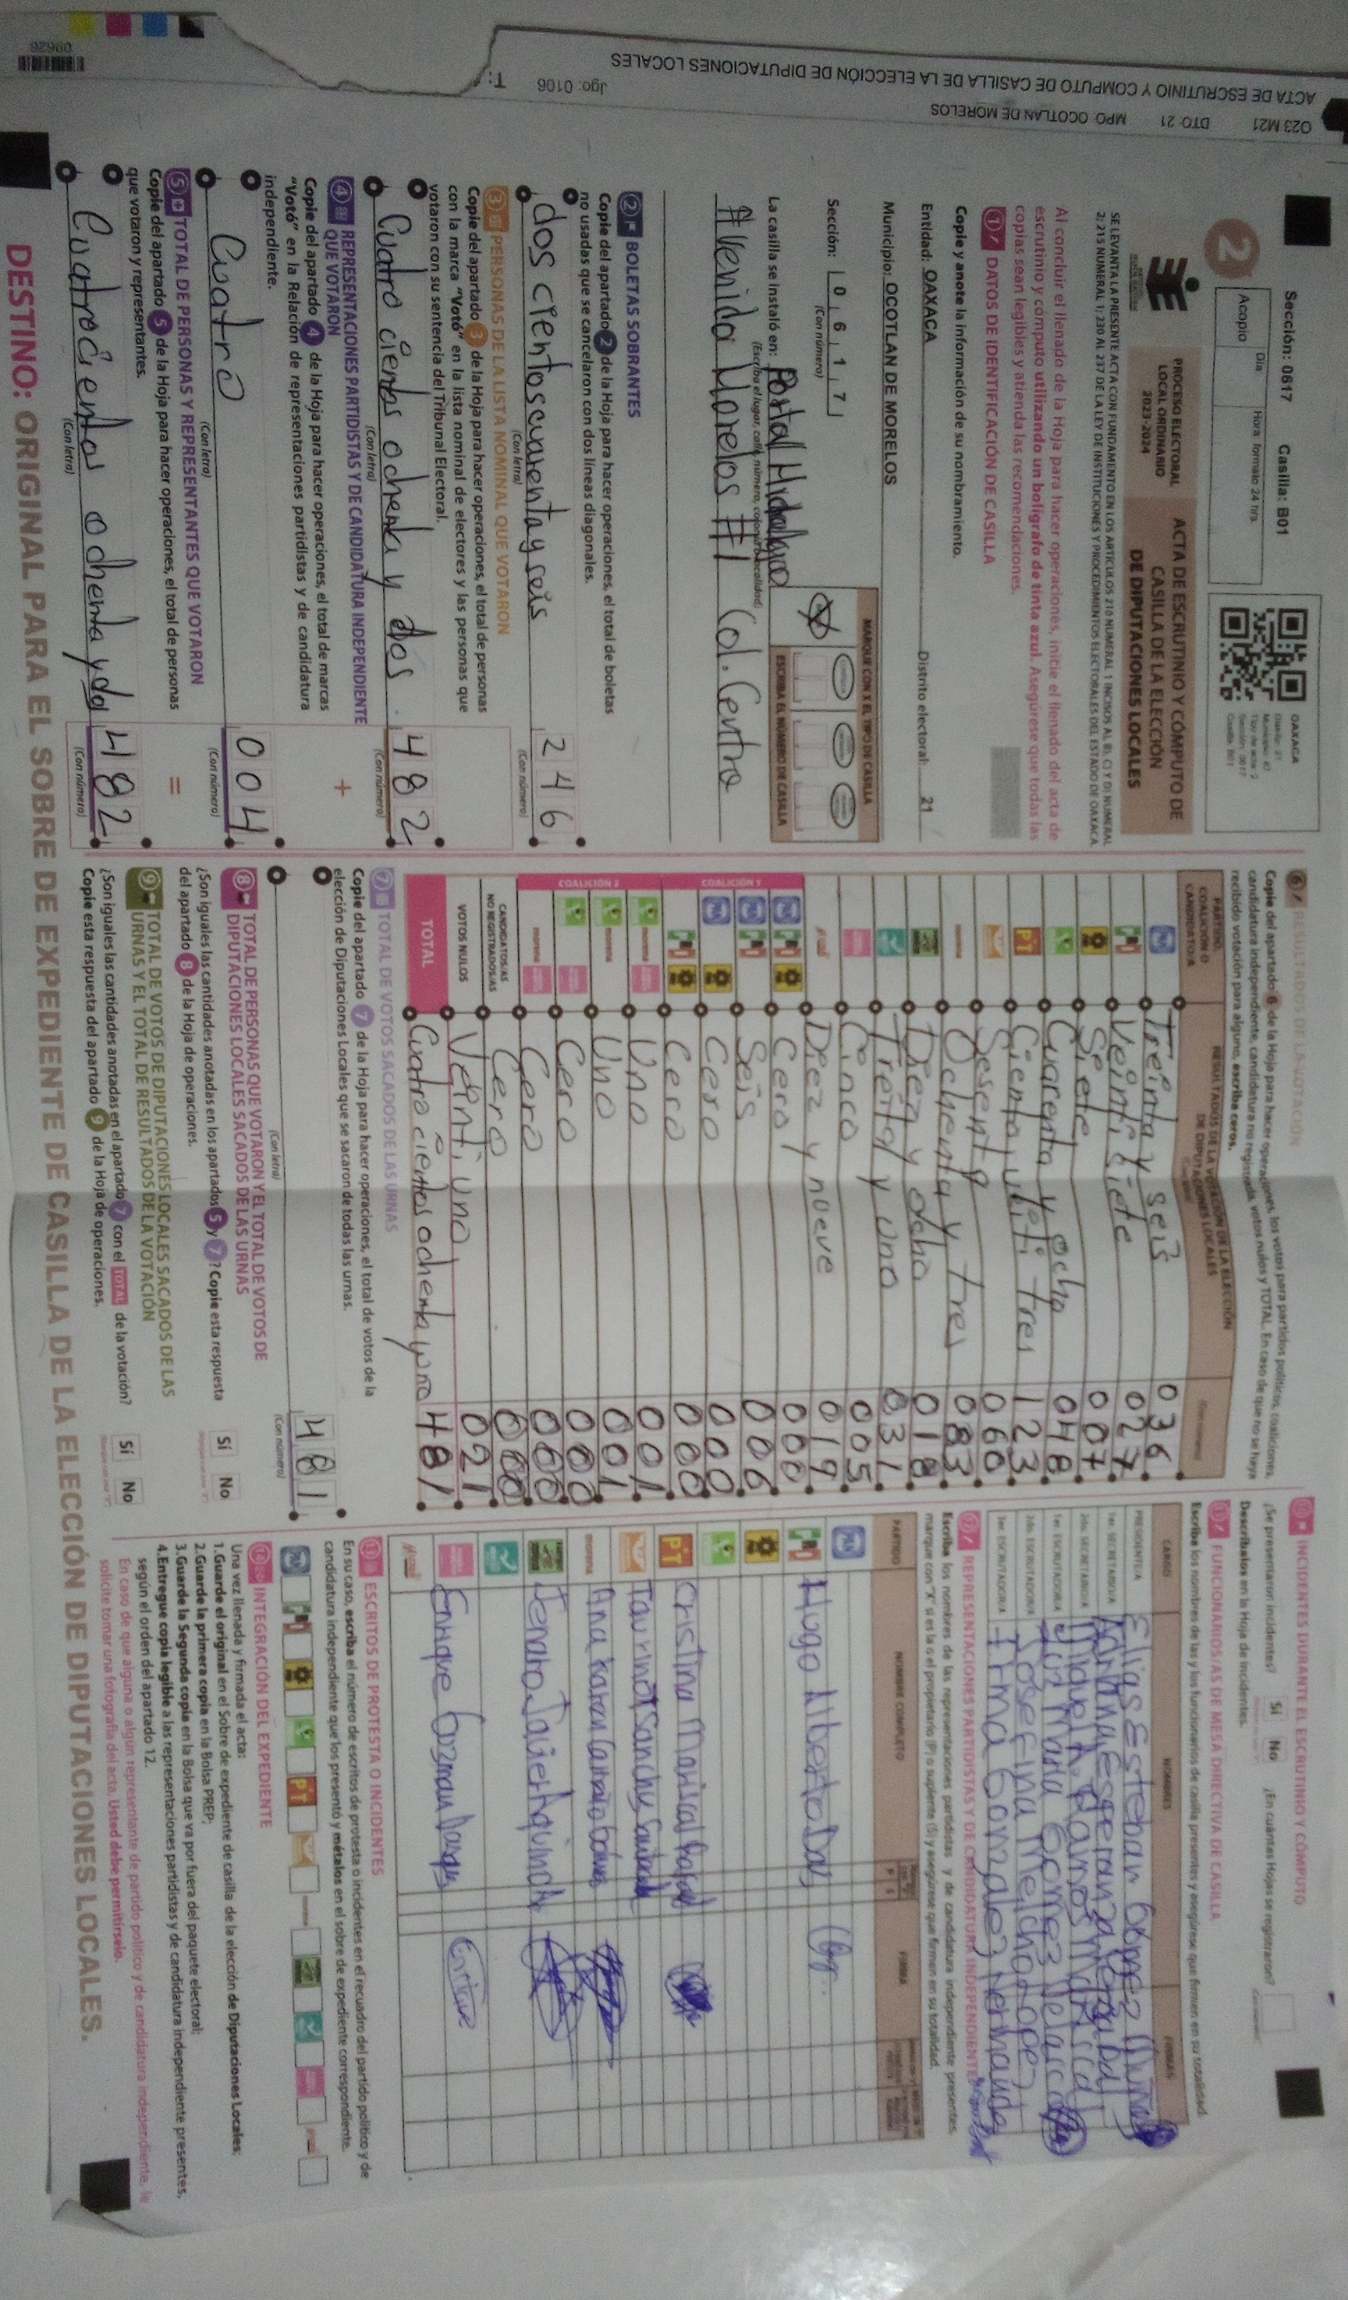 ACTA DE ESCRUTINIO Y CÓMPUTO DE CASILLA DE LA ELECCIÓN DE DIPUTACIONES LOCALES
O23 M21 DTO: 21 MPO: OCOTLAN DE MORELOS Jgo: 0106
Sección: 0617 Casilla: B01
2
Día Hora formato 24 hrs.
Acopio
OAXACA
PROCESO ELECTORAL
LOCAL ORDINARIO
2023-2024
ACTA DE ESCRUTINIO Y CÓMPUTO DE
CASILLA DE LA ELECCIÓN
DE DIPUTACIONES LOCALES
SE LEVANTA LA PRESENTE ACTA CON FUNDAMENTO EN LOS ARTÍCULOS 210 NUMERAL 1 INCISOS A), B), C) Y D) NUMERAL
2; 215 NUMERAL 1; 230 AL 237 DE LA LEY DE INSTITUCIONES Y PROCEDIMIENTOS ELECTORALES DEL ESTADO DE OAXACA
Al concluir el llenado de la Hoja para hacer operaciones, inicie el llenado del acta de
escrutinio y cómputo utilizando un bolígrafo de tinta azul. Asegúrese que todas las
copias sean legibles y atienda las recomendaciones.
1 DATOS DE IDENTIFICACIÓN DE CASILLA
Copie y anote la información de su nombramiento.
Entidad: OAXACA Distrito electoral: 21
Municipio: OCOTLAN DE MORELOS
Sección: 0 6 1 7
(Con número)
MARQUE CON X EL TIPO DE CASILLA
ESCRIBA EL NÚMERO DE CASILLA
La casilla se instaló en: Portal Hidalgo
(Escriba el lugar, calle, número, colonia o localidad)
Avenida Morelos #1 Col. Centro
2 BOLETAS SOBRANTES
Copie del apartado 2 de la Hoja para hacer operaciones, el total de boletas
no usadas que se cancelaron con dos líneas diagonales.
dos cientos cuarenta y seis 246
(Con letra) (Con número)
3 PERSONAS DE LA LISTA NOMINAL QUE VOTARON
Copie del apartado 3 de la Hoja para hacer operaciones, el total de personas
con la marca "Votó" en la lista nominal de electores y las personas que
votaron con su sentencia del Tribunal Electoral.
Cuatro cientos ochenta y dos 482
(Con letra) (Con número)
4 REPRESENTACIONES PARTIDISTAS Y DE CANDIDATURA INDEPENDIENTE
QUE VOTARON
+
Copie del apartado 4 de la Hoja para hacer operaciones, el total de marcas
"Votó" en la Relación de representaciones partidistas y de candidatura
independiente.
Cuatro 004
(Con letra) (Con número)
5 TOTAL DE PERSONAS Y REPRESENTANTES QUE VOTARON
=
Copie del apartado 5 de la Hoja para hacer operaciones, el total de personas
que votaron y representantes.
Cuatrocientos ochenta y dos 482
(Con letra) (Con número)
6 RESULTADOS DE LA VOTACIÓN
Copie del apartado 6 de la Hoja para hacer operaciones, los votos para partidos políticos, coaliciones,
candidatura independiente, candidatura no registrada, votos nulos y TOTAL. En caso de que no se haya
recibido votación para alguno, escriba ceros.
PARTIDO, COALICIÓN O CANDIDATO/A
RESULTADOS DE LA VOTACIÓN DE LA ELECCIÓN
DE DIPUTACIONES LOCALES
Treinta y seis 036
Veinti siete 027
Siete 007
Cuarenta y ocho 048
PT Ciento veinti tres 123
Sesenta 060
Ochenta y tres 083
Diez y ocho 018
Treinta y uno 031
Cinco 005
Diez y nueve 019
COALICIÓN 1
Cero 000
Seis 006
Cero 000
Cero 000
COALICIÓN 2
Uno 001
Uno 001
Cero 000
Cero 000
CANDIDATOS/AS
NO REGISTRADOS/AS Cero 000
VOTOS NULOS Veinti uno 021
TOTAL Cuatro cientos ochenta y uno 481
7 TOTAL DE VOTOS SACADOS DE LAS URNAS
Copie del apartado 7 de la Hoja para hacer operaciones, el total de votos de la
elección de Diputaciones Locales que se sacaron de todas las urnas.
481
(Con letra) (Con número)
8 TOTAL DE PERSONAS QUE VOTARON Y EL TOTAL DE VOTOS DE
DIPUTACIONES LOCALES SACADOS DE LAS URNAS
¿Son iguales las cantidades anotadas en los apartados 5 y 7? Copie esta respuesta
del apartado 8 de la Hoja de operaciones.
Sí No
9 TOTAL DE VOTOS DE DIPUTACIONES LOCALES SACADOS DE LAS
URNAS Y EL TOTAL DE RESULTADOS DE LA VOTACIÓN
¿Son iguales las cantidades anotadas en el apartado 7 con el TOTAL de la votación?
Copie esta respuesta del apartado 9 de la Hoja de operaciones.
Sí No
10 INCIDENTES DURANTE EL ESCRUTINIO Y CÓMPUTO
¿Se presentaron incidentes? Sí No ¿En cuántas Hojas se registraron?
Descríbalos en la Hoja de incidentes.
11 FUNCIONARIOS/AS DE MESA DIRECTIVA DE CASILLA
Escriba los nombres de las y los funcionarios de casilla presentes y asegúrese que firmen en su totalidad.
CARGO NOMBRES FIRMAS
PRESIDENTE/A Elias Esteban Gomez
1er. SECRETARIO/A
2do. SECRETARIO/A Miguel A. Ramos
1er. ESCRUTADOR/A Luz Maria Gomez
2do. ESCRUTADOR/A Josefina Melchor Lopez
3er. ESCRUTADOR/A Irma Gonzalez Hernandez
12 REPRESENTACIONES PARTIDISTAS Y DE CANDIDATURA INDEPENDIENTE
Escriba los nombres de las representaciones partidistas y de candidatura independiente presentes,
marque con "X" si es la o el propietario (P) o suplente (S) y asegúrese que firmen en su totalidad.
PARTIDO NOMBRE COMPLETO FIRMA
Hugo Alberto
PT Cristina Mariscal
Ana Karen
Jenaro Javier
Enrique Guzman Enrique
13 ESCRITOS DE PROTESTA O INCIDENTES
En su caso, escriba el número de escritos de protesta o incidentes en el recuadro del partido político y de
candidatura independiente que los presentó y métalos en el sobre de expediente correspondiente.
14 INTEGRACIÓN DEL EXPEDIENTE
Una vez llenada y firmada el acta:
1.Guarde el original en el Sobre de expediente de casilla de la elección de Diputaciones Locales;
2.Guarde la primera copia en la Bolsa PREP;
3.Guarde la Segunda copia en la Bolsa que va por fuera del paquete electoral;
4.Entregue copia legible a las representaciones partidistas y de candidatura independiente presentes,
según el orden del apartado 12.
En caso de que alguna o algún representante de partido político y de candidatura independiente, le
solicite tomar una fotografía del acta, Usted debe permitírselo.
DESTINO: ORIGINAL PARA EL SOBRE DE EXPEDIENTE DE CASILLA DE LA ELECCIÓN DE DIPUTACIONES LOCALES.